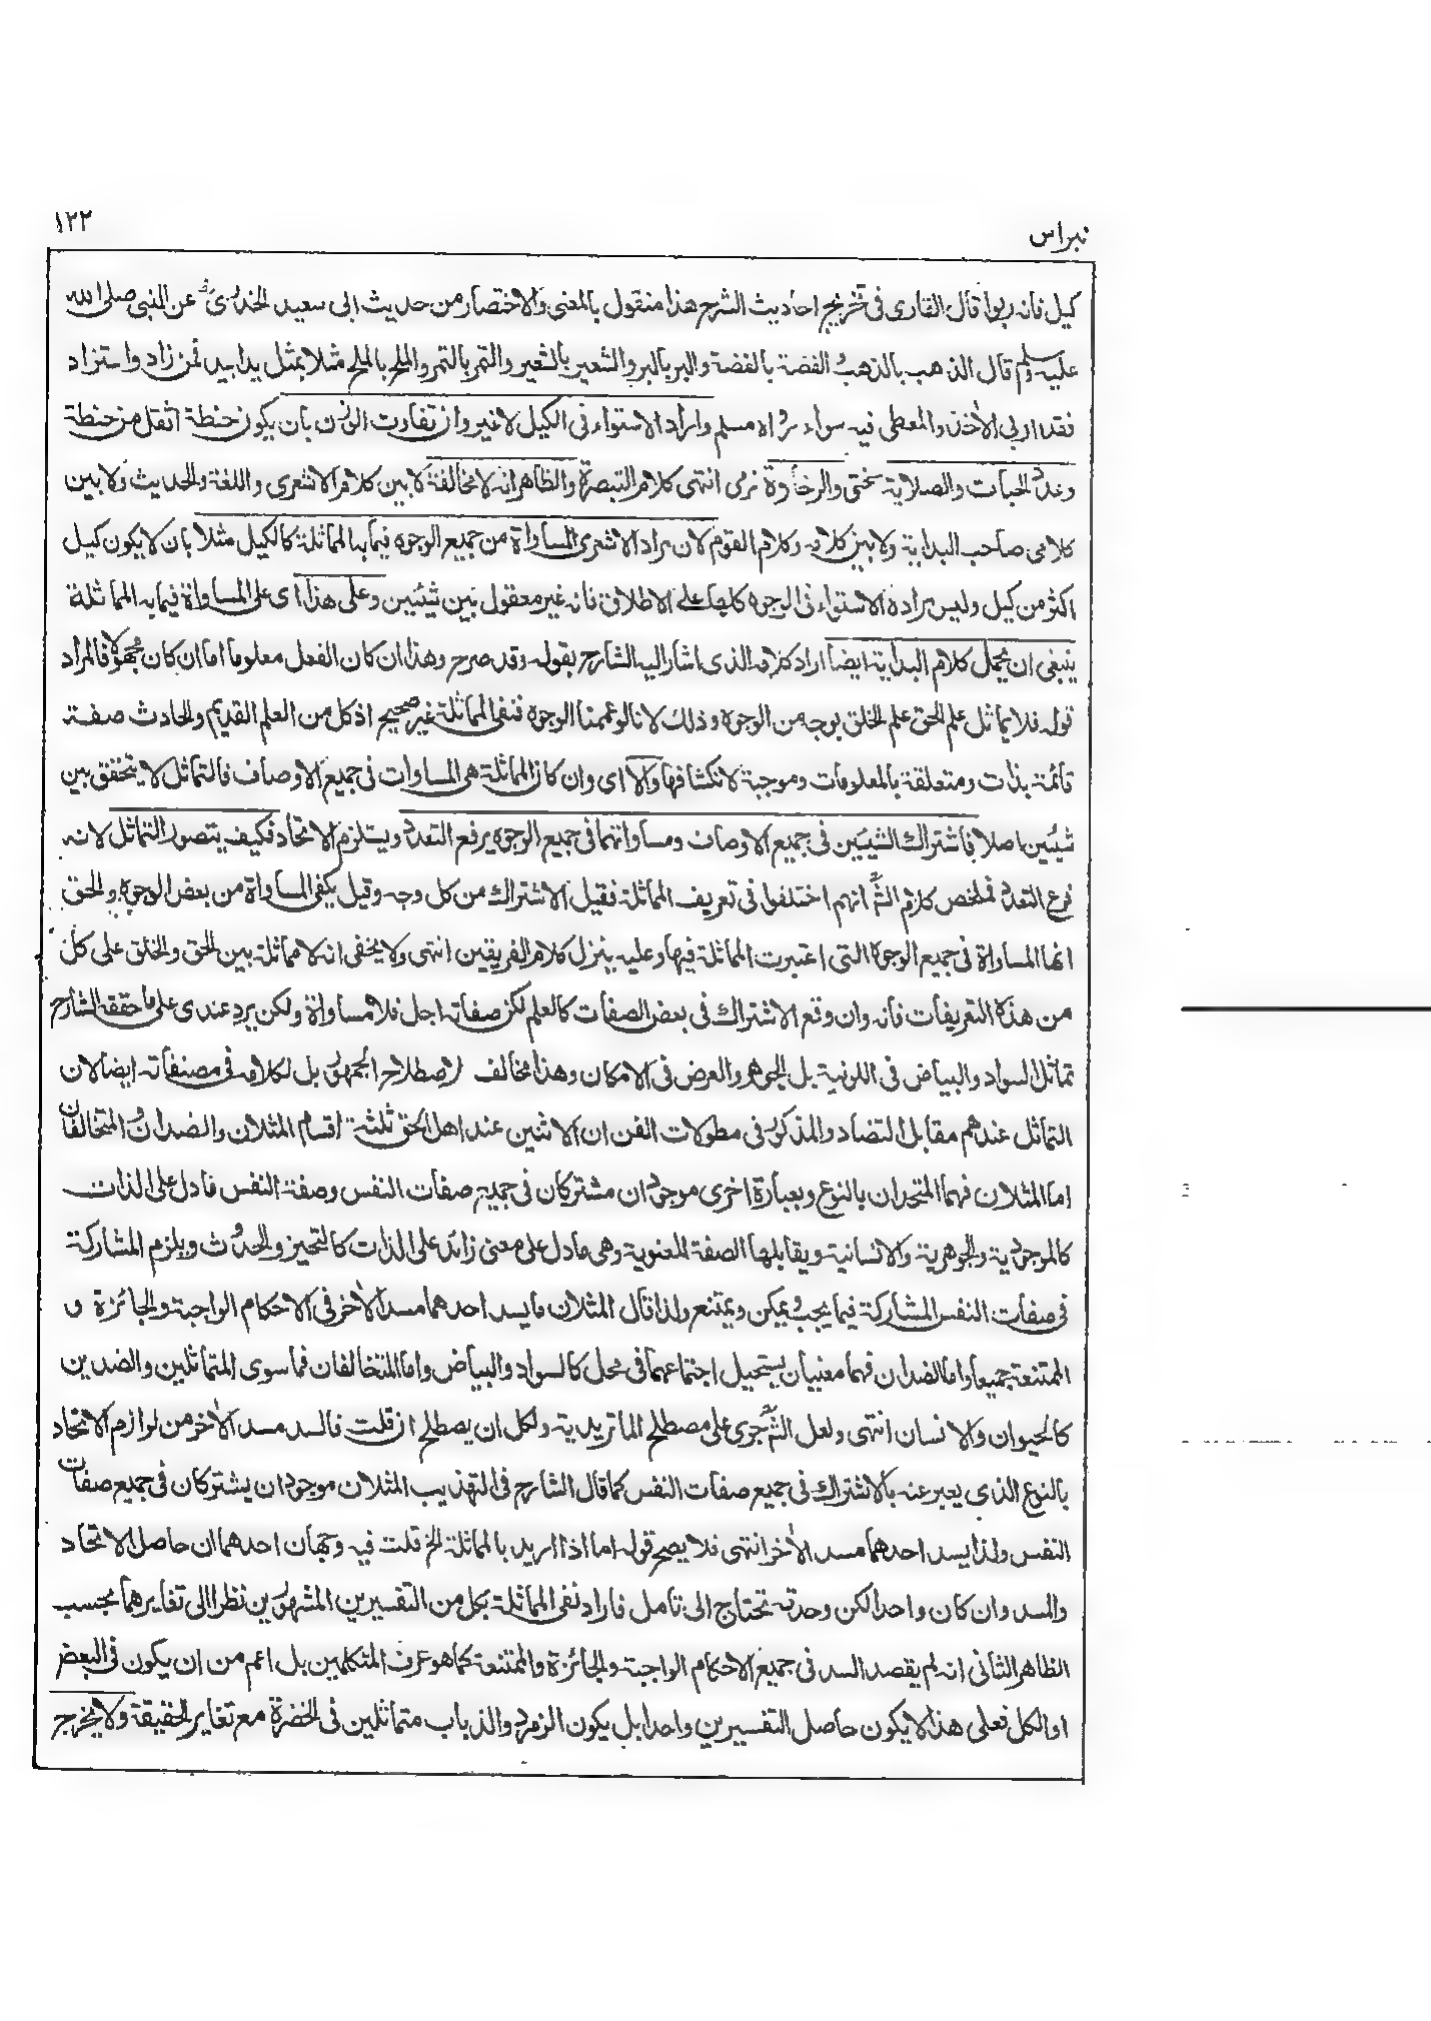 نبراس
١٢٢
كيل فانه ربوا قال القارى فى تخريج احاديث الشرح هذا منقول بالمعنى والاختصار من حديث ابى سعيد الخدرى عن النبى صلى الله
عليه وسلم قال الذهب بالذهب والفضة بالفضة والبر بالبر والشعير بالشعير والتمر بالتمر والملح بالملح مثلا بمثل يدا بيد فمن زاد واستزاد
فقد اربى الاخذ والمعطى فيه سواء رواه مسلم واراد الاستواء فى الكيل لا غير وان تفاوت الوزن بان يكون حنطة اثقل من حنطة
وعدد الحبات والصلابة سختى والرخاوة نرمى انتهى كلام التبصرة والظاهر انه لا مخالفة لا بين كلام الاشعرى واللغة والحديث ولا بين
كلامى صاحب البداية ولا بين كلامه وكلام القوم لان مراد الاشعرى المساواة من جميع الوجوه فيما به المماثلة كالكيل مثلا بان لا يكون كيل
اكثر من كيل وليس مراده الاستواء فى الوجوه كلها على الاطلاق فانه غير معقول بين شيئين وعلى هذا اى على المساواة فيما به المماثلة
ينبغى ان يحمل كلام البداية ايضا اراد كلامه الذى اشار اليه الشارح بقوله وقد صرح وهذا ان كان الفعل معلوما اما ان كان مجهولا فالمراد
قوله فلا يماثل علم الحق علم الخلق بوجه من الوجوه وذلك لانا لو عممنا الوجوه فنفى المماثلة غير صحيح اذ كل من العلم القديم والحادث صفة
قائمة بذات ومتعلقة بالمعلومات وموجبة لانكشافها والا اى وان كان المماثلة هى المساوات فى جميع الاوصاف فالتماثل لا يتحقق بين
شيئين اصلا فاشتراك الشيئين فى جميع الاوصاف ومساواتهما فى جميع الوجوه يرفع التعدد ويستلزم الاتحاد فكيف يتصور التماثل لانه
فرع التعدد فملخص كلام الش انهم اختلفوا فى تعريف المماثلة فقيل الاشتراك من كل وجه وقيل يكفى المساواة من بعض الوجوه والحق
انها المساواة فى جميع الوجوه التى اعتبرت المماثلة فيها وعليه ينزل كلام الفريقين انتهى ولا يخفى انه لا مماثلة بين الحق والخلق على كل
من هذه التعريفات فانه وان وقع الاشتراك فى بعض الصفات كالعلم لكن صفاته اجل فلا مساواة ولكن يرد عندى على ما حققه الشارح
تماثل السواد والبياض فى اللونية بل الجوهر والعرض فى الامكان وهذا مخالف لاصطلاح الجمهور بل لكلامه فى مصنفاته ايضا لان
التماثل عندهم مقابل التضاد والمذكور فى مطولات الفن ان الاثنين عند اهل الحق ثلثة اقسام المثلان والضدان والمتخالفان
اما المثلان فهما المتحدان بالنوع وبعبارة اخرى موجودان مشتركان فى جميع صفات النفس وصفة النفس ما دل على الذات
كالموجودية والجوهرية والانسانية ويقابلها الصفة المعنوية وهى ما دل على معنى زائد على الذات كالتحيز والحدوث ويلزم المشاركة
فى صفات النفس المشاركة فيما يجب ويمكن ويمتنع ولذا قال المثلان ما يسد احدهما مسد الاخر فى الاحكام الواجبة والجائزة و
الممتنعة جميعا واما الضدان فهما معنيان يستحيل اجتماعهما فى محل كالسواد والبياض واما المتخالفان فما سوى المتماثلين والضدين
كالحيوان والانسان انتهى ولعل الش جرى على مصطلح الماتريدية ولكل ان يصطلح ان قلت فالسد مسد الاخر من لوازم الاتحاد
بالنوع الذى يعبر عنه بالاشتراك فى جميع صفات النفس كما قال الشارح فى التهذيب المثلان موجودان يشتركان فى جميع صفات
النفس ولذا يسد احدهما مسد الاخر انتهى فلا يصح قوله اما اذا اريد بالمماثلة الخ قلت فيه وجهان احدهما ان حاصل الاتحاد
والسد وان كان واحدا لكن وحدته تحتاج الى تامل فاراد نفى المماثلة بكل من التفسيرين المشهورين نظرا الى تغايرهما بحسب
الظاهر الثانى انه لم يقصد السد فى جميع الاحكام الواجبة والجائزة والممتنعة كما هو عرف المتكلمين بل اعم من ان يكون فى البعض
او الكل فعلى هذا لا يكون حاصل التفسيرين واحدا بل يكون الزمرد والذباب متماثلين فى الخضرة مع تغاير الحقيقة ولا يخرج